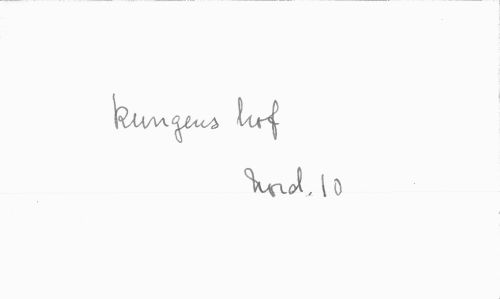 Kungens hof
Nord. 10